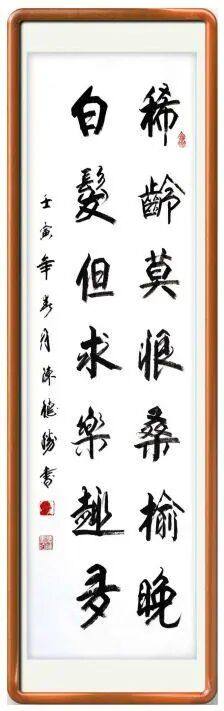 稀齡莫恨桑榆晚
白髮但求樂趣多
壬寅年春月陳德勝書